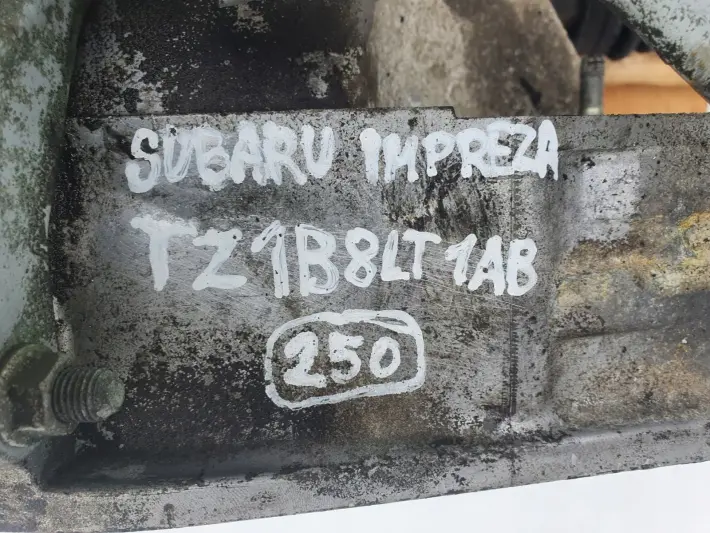 SUBARU IMPREZA
TZ1B8LT1AB
250